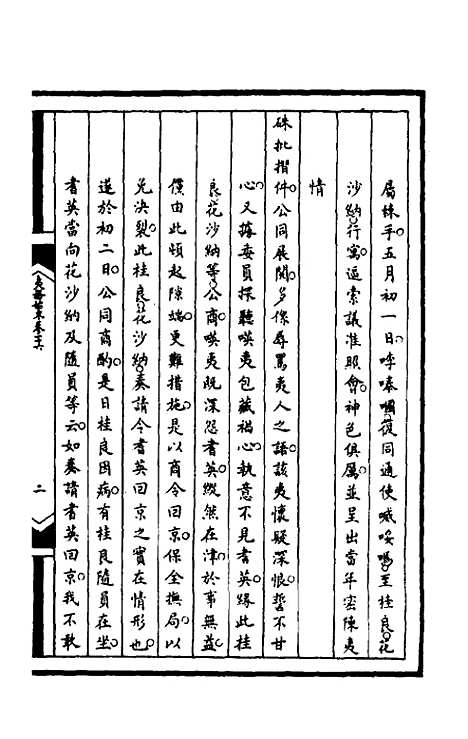 屬練手。五月初一日。呼嗹嘓。復同通使喊㖠嗎。至桂良。花
沙納。行寓。逼索議准照會。神色俱厲。並呈出當年密陳夷
情
硃批摺件。公同展閱。多係辱罵夷人之語。該夷懷疑深恨。誓不甘
心。又據委員探聽。暎夷包藏禍心。執意不見耆英。緣此桂
良。花沙納等。公商暎夷既深怨耆英。縱然在津。於事無益。
僅由此頓起隙端。更難措施。是以商令回京。保全撫局。以
免決裂。此桂良。花沙納。奏請令耆英回京之實在情形也。
遂於初二日。公同商酌。是日桂良因病。有桂良隨員在坐。
耆英當向花沙納及隨員等云。如奏請耆英回京。我不敢
夷務始末卷二六
二